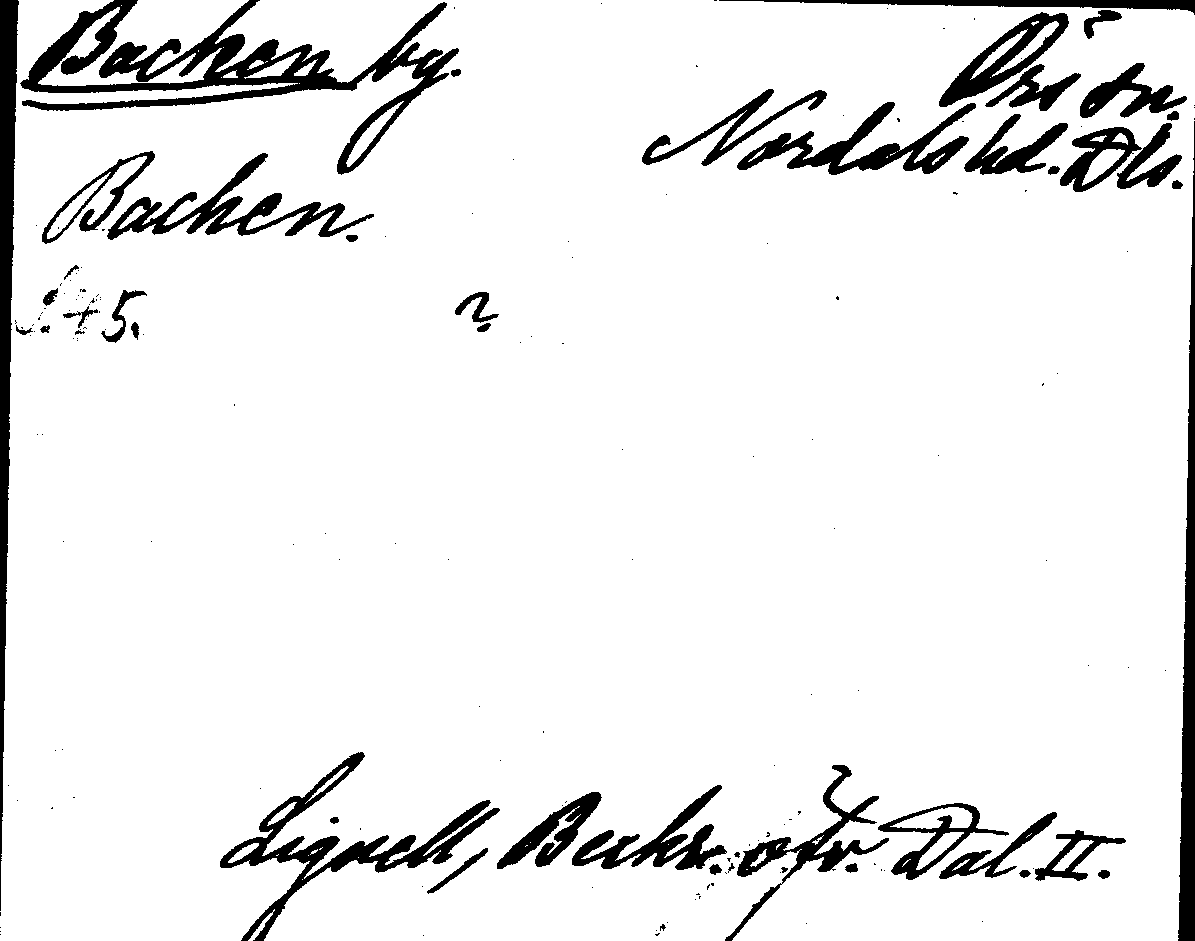 Backen by.
Örs sn.
Nordals hd. Dls.
Backen.
S. 45. ?
Lignell, Beskr. öfv. Dal. II.